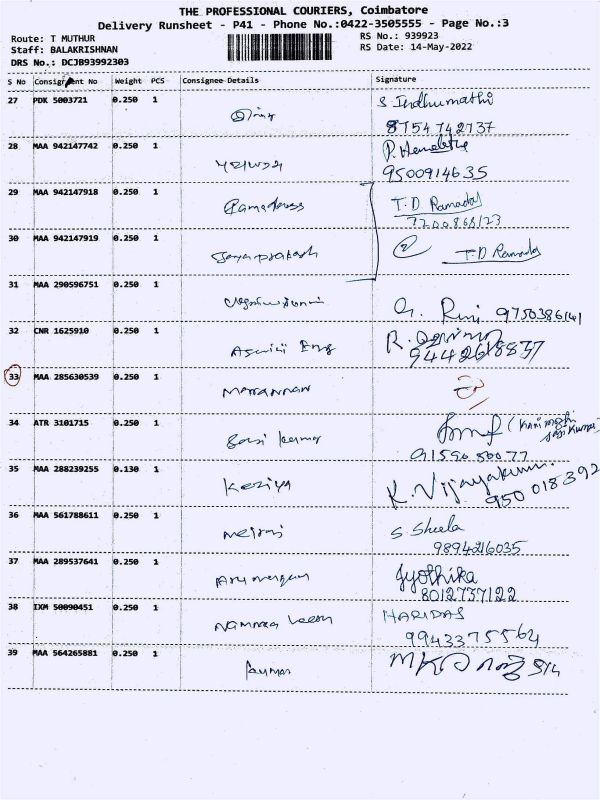 THE PROFESSIONAL COURIERS, Coimbatore
Delivery Runsheet - P41 - Phone No.:0422-3505555 - Page No.:3
Route: T MUTHUR RS No.: 939923
Staff: BALAKRISHNAN RS Date: 14-May-2022
DRS No.: DCJB93992303
S No Consignment No Weight PCS Consignee Details Signature
27 PDK 5003721 0.250 1 S Indhumathi
8754742737
28 MAA 942147742 0.250 1 P. Hemalatha
9500914635
29 MAA 942147918 0.250 1 Ramadoss T.D Ramadas
7200868123
30 MAA 942147919 0.250 1 Jayaprakash 2 T.D Ramadas
31 MAA 290596751 0.250 1 9750386141
32 CNR 1625910 0.250 1 Aswini Eng R.
9442618837
33 MAA 285630539 0.250 1
34 ATR 3101715 0.250 1 Sasi kumar
9159080077
35 MAA 288239255 0.130 1 Keziya K. Vijayakumar
950 018 392
36 MAA 561788611 0.250 1 S Sheela
9894216035
37 MAA 289537641 0.250 1 Arumugam Jyothika
8012737122
38 IXM 50090451 0.250 1 HARIDAS
9943375564
39 MAA 564265881 0.250 1